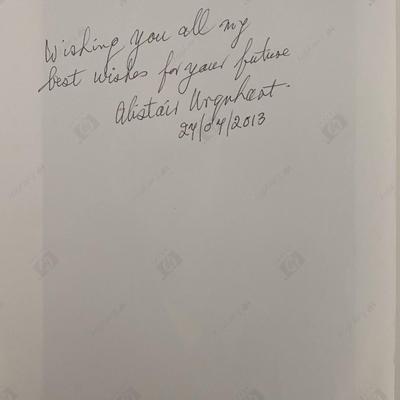 Wishing you all my
best wishes for your future
Alistair Urquhart.
27/04/2013